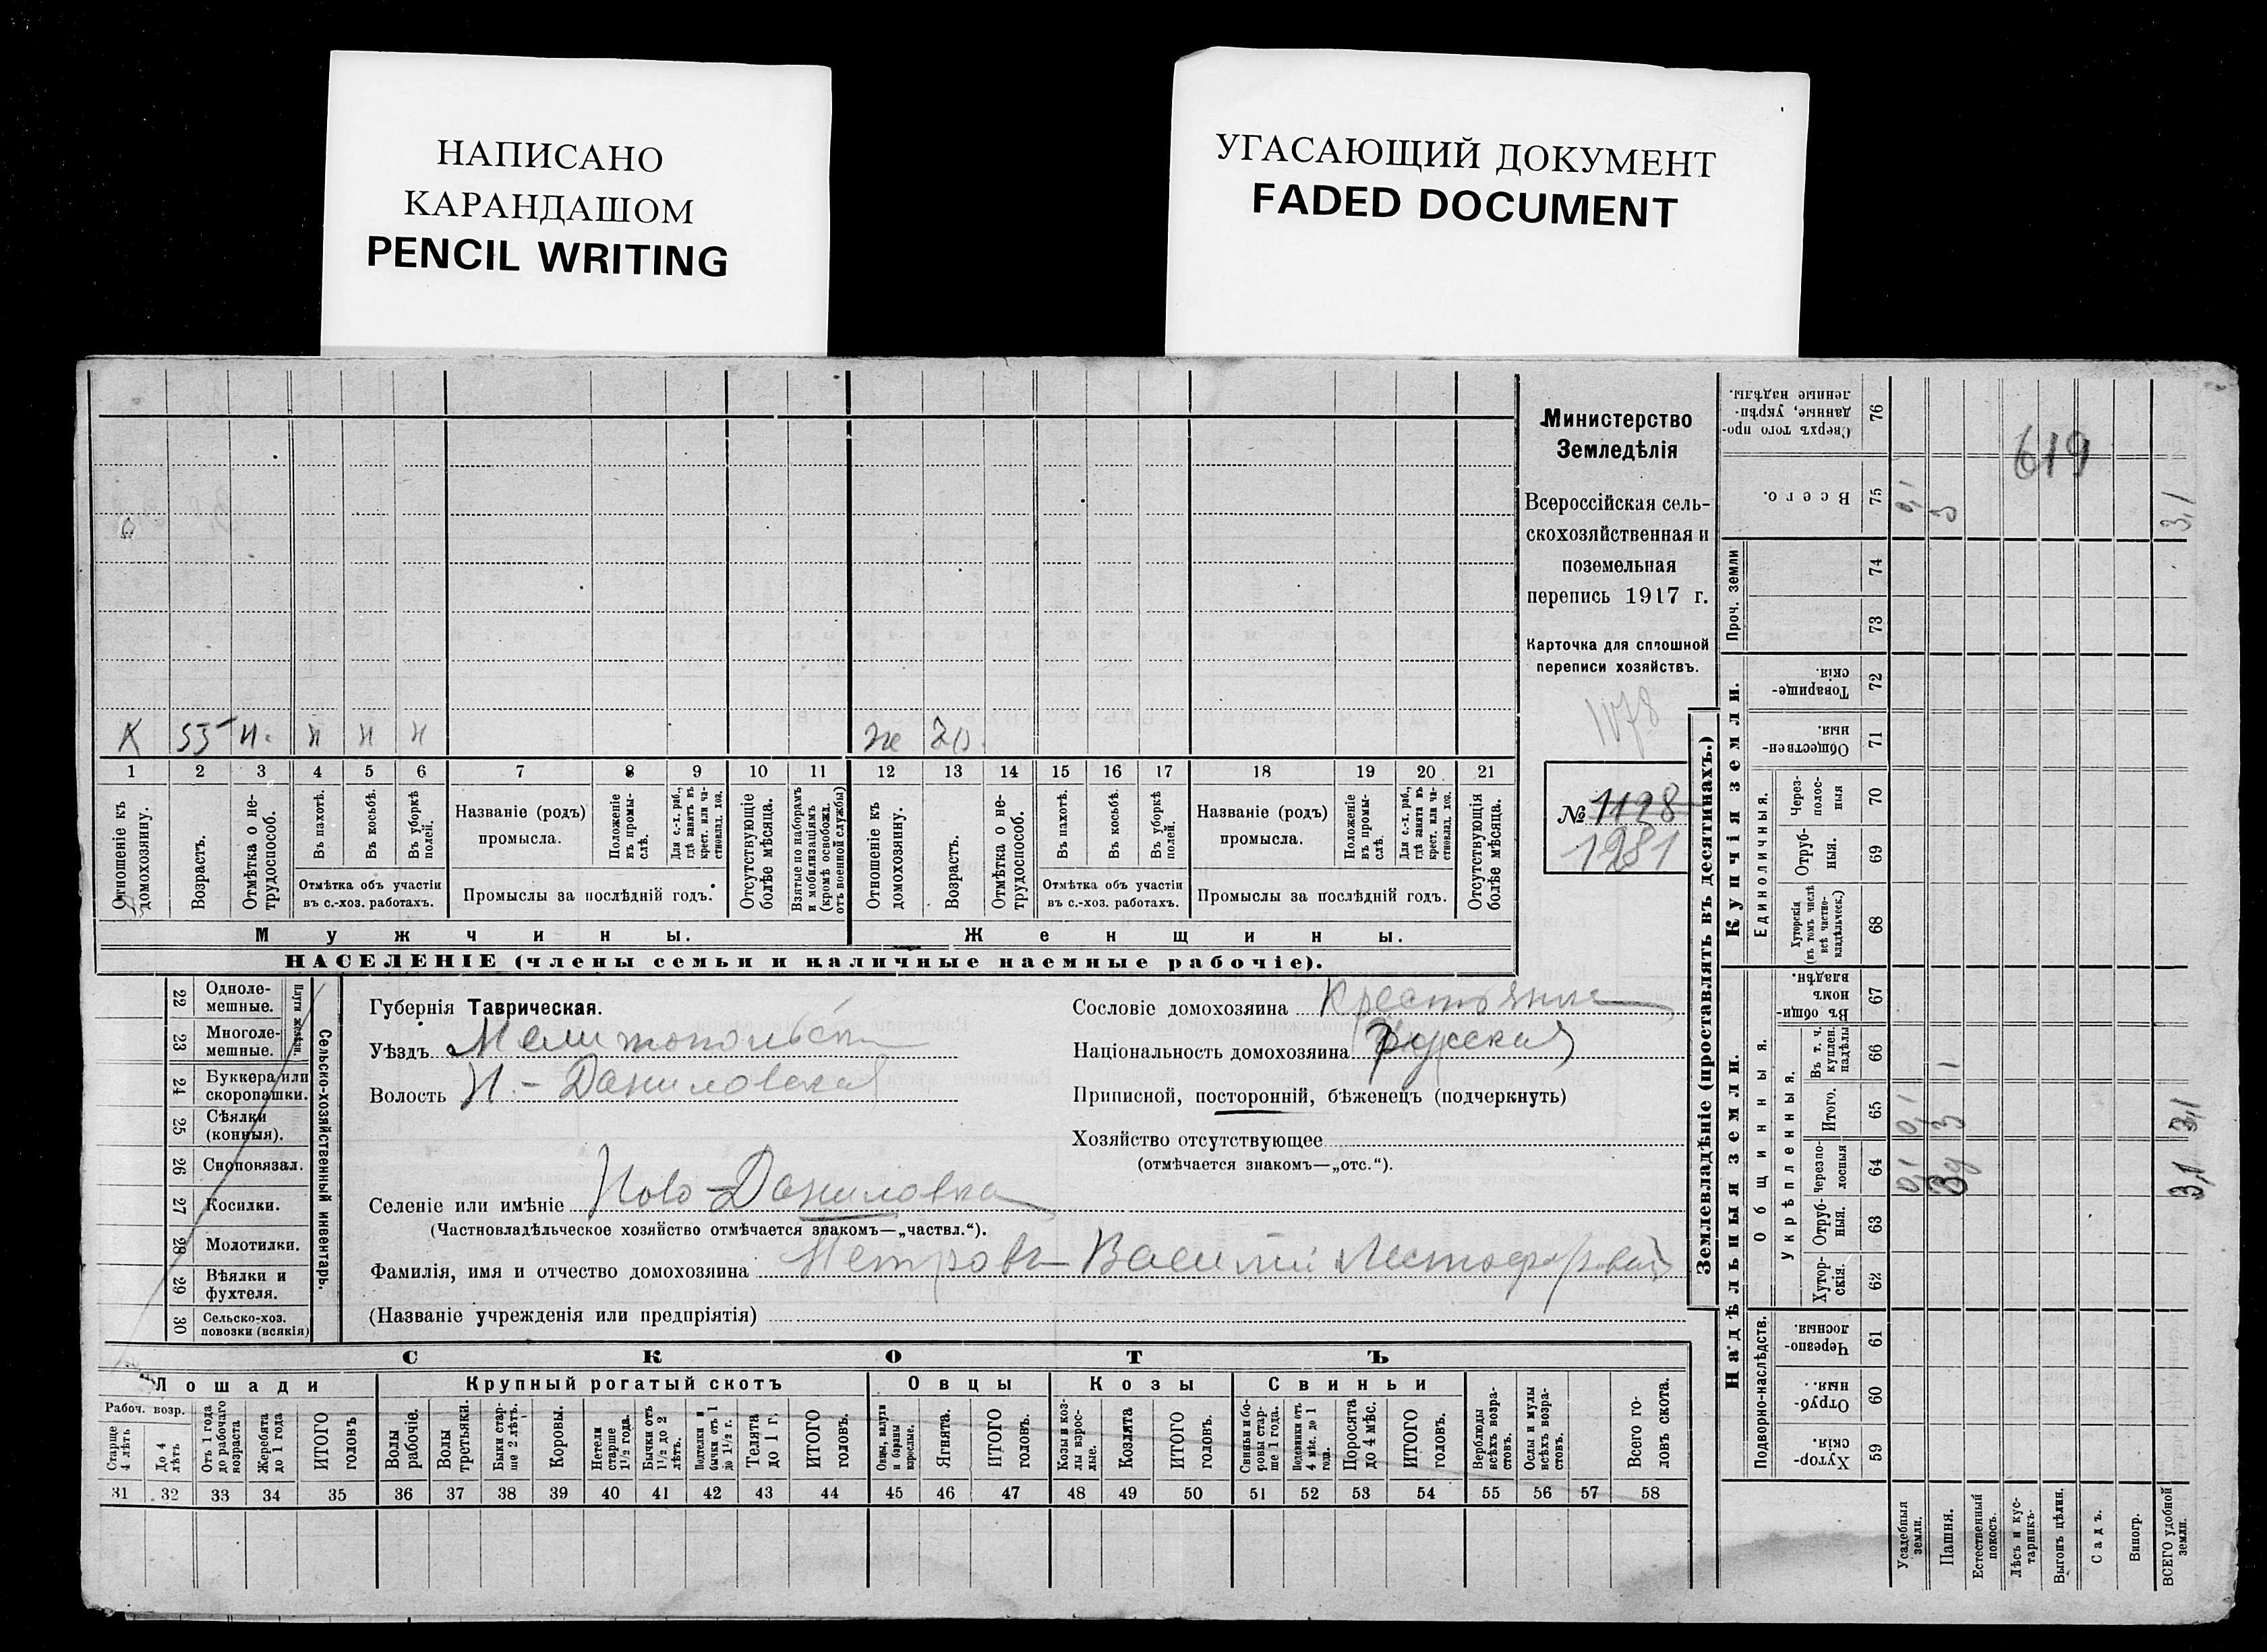 НАПИСАНО
КАРАНДАШОМ
PENCIL WRITING
УГАСАЮЩИЙ ДОКУМЕНТ
FADED DOCUMENT
Министерство
Земледѣлія
Всероссійская сель-
скохозяйственная и
поземельная
перепись 1917 г.
Карточка для сплошной
переписи хозяйствъ.
1078
№ 1128
1281
К 55 н. н н н
ж 20.
1 2 3 4 5 6 7 8 9 10 11 12 13 14 15 16 17 18 19 20 21
Отношеніе къ домохозяину.
Возрастъ.
Отмѣтка о не-трудоспособ.
Въ пахотѣ.
Въ косьбѣ.
Въ уборкѣ полей.
Отмѣтка объ участіи
въ с.-хоз. работахъ.
Названіе (родъ)
промысла.
Положеніе въ промы-слѣ.
Для с.-х. раб., гдѣ занятъ въ крест. или ча-стновлад. хоз.
Промыслы за послѣдній годъ.
Отсутствующіе болѣе мѣсяца.
Взятые по наборамъ и мобилизаціямъ (кромѣ освобожд. отъ военной службы)
Отношеніе къ домохозяину.
Возрастъ.
Отмѣтка о не-трудоспособ.
Въ пахотѣ.
Въ косьбѣ.
Въ уборкѣ полей.
Отмѣтка объ участіи
въ с.-хоз. работахъ.
Названіе (родъ)
промысла.
Положеніе въ промы-слѣ.
Для с.-х. раб., гдѣ занята въ крест. или ча-стновлад. хоз.
Промыслы за послѣдній годъ.
Отсутствующія болѣе мѣсяца.
Мужчины.
Женщины.
НАСЕЛЕНІЕ (члены семьи и наличные наемные рабочіе).
22 Одноле-мешные.
23 Многоле-мешные.
24 Буккера или скоропашки.
25 Сѣялки (конныя).
26 Сноповязал.
27 Косилки.
28 Молотилки.
29 Вѣялки и фухтеля.
30 Сельско-хоз. повозки (всякія)
Сельско-хозяйственный инвентарь.
Губернія Таврическая.
Уѣздъ Мелитопольск
Волость Н.-Даниловская
Селеніе или имѣніе Ново-Даниловка
(Частновладѣльческое хозяйство отмѣчается знакомъ—„частвл.“).
Фамилія, имя и отчество домохозяина Петровъ Василій
(Названіе учрежденія или предпріятія)
Сословіе домохозяина Крестьяни
Національность домохозяина Русская
Приписной, посторонній, бѣженецъ (подчеркнуть)
Хозяйство отсутствующее
(отмѣчается знакомъ—„отс.“).
СКОТЪ
Лошади
Крупный рогатый скотъ
Овцы
Козы
Свиньи
Рабоч. возр.
Старше 4 лѣтъ
До 4 лѣтъ
Отъ 1 года до рабочаго возраста
Жеребята до 1 года
ИТОГО головъ
Волы рабочіе.
Волы третьяки.
Быки стар-ше 2 лѣтъ.
Коровы.
Нетели старше 1½ года.
Бычки отъ 1½ до 2 лѣтъ.
Подтелки и бычки отъ 1 до 1½ г.
Телята до 1 г.
ИТОГО головъ.
Овцы, валухи и бараны взрослые.
Ягнята.
ИТОГО головъ.
Козы и коз-лы взрос-лые.
Козлята
ИТОГО головъ.
Свиньи и бо-ровы стар-ше 1 года.
Подсвинки отъ 4 мѣс. до 1 года.
Поросята до 4 мѣс.
ИТОГО головъ.
Верблюды всѣхъ возра-стовъ.
Ослы и мулы всѣхъ возра-стовъ.
Всего го-ловъ скота.
31 32 33 34 35 36 37 38 39 40 41 42 43 44 45 46 47 48 49 50 51 52 53 54 55 56 57 58
Землевладѣніе (проставлять въ десятинахъ.)
Надѣльныя земли.
Купчія земли.
Проч. земли
Подворно-наслѣдств.
Общинныя.
Укрѣпленныя.
Единоличныя.
Сверхъ того про-данные, укрѣп-ленные надѣлы. 76
Всего. 75 0,1 3 3,1
619
74
73
Товарище-скія 72
Обществен-ныя. 71
Через-полос-ныя 70
Отруб-ныя. 69
Хуторскія (въ томъ числѣ всѣ частно-владѣльческ.) 68
Въ общин-номъ владѣн. 67
Въ т. ч. куплен. надѣлы 66 1
Итого. 65 0,1 3 3,1
Черезпо-лосныя 64 0,1 3,1
Отруб-ныя. 63
Хутор-скія. 62
Черезпо-лосныя. 61
Отруб-ныя. 60
Хутор-скія. 59
Усадебныя земли.
Пашня.
Естественный покосъ.
Лѣсъ и кус-тарникъ.
Выгонъ цѣлин.
Садъ.
Виногр.
ВСЕГО удобной земли.